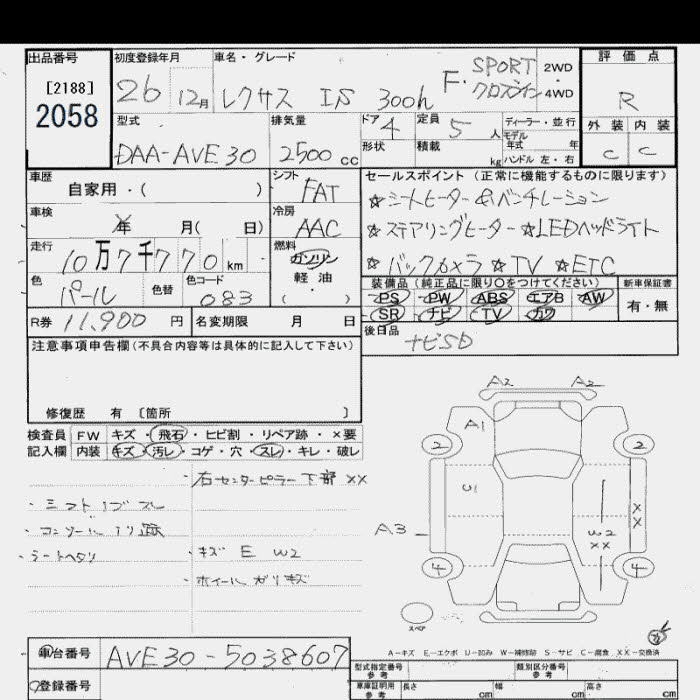 出品番号 初度登録年月 車名・グレード 評価点
[2188]
2058
26 12月 レクサス IS 300h F・SPORT クロスライン 2WD・4WD R
型式 排気量 ドア 4 定員 5人 ディーラー・並行 外装 内装
DAA-AVE30 2500cc 形状 積載 kg モデル年式 年 ハンドル 左・右 C C
車歴 自家用・( ) シフト FAT セールスポイント (正常に機能するものに限ります)
☆シートヒーター&ベンチレーション
車検 年 月( 日) 冷房 AAC ☆ステアリングヒーター ☆LEDヘッドライト
走行 10万7千770km 燃料 ガソリン ☆バックカメラ ☆TV ☆ETC
色 パール 色替 色コード 083 軽油 ( ・ )
装備品 (純正品に限り○をつけてください) 新車保証書
PS PW ABS エアB AW 有・無
SR ナビ TV カワ
R券 11,900円 名変期限 月 日 後日品 ナビSD
注意事項申告欄(不具合内容等は具体的に記入して下さい)
修復歴 有 〔箇所 〕
検査員 FW キズ・飛石・ヒビ割・リペア跡・×要
記入欄 内装 キズ・汚レ・コゲ・穴・スレ・キレ・破レ
・右センターピラー下部 XX
・シフトノブスレ
・シートヘタリ
・キズ E W2
・ホイールガリキズ
A2 A2
A1
2 2
U1
XX
A3
W2
XX
4 4
スペア
A-キズ E-エクボ U-凹み W-補修跡 S-サビ C-腐食 XX-交換済
車台番号 AVE30-5038607
登録番号
型式指定番号 参考 類別区分番号 参考
車庫証明用 参考 長さ cm 幅 cm 高さ cm